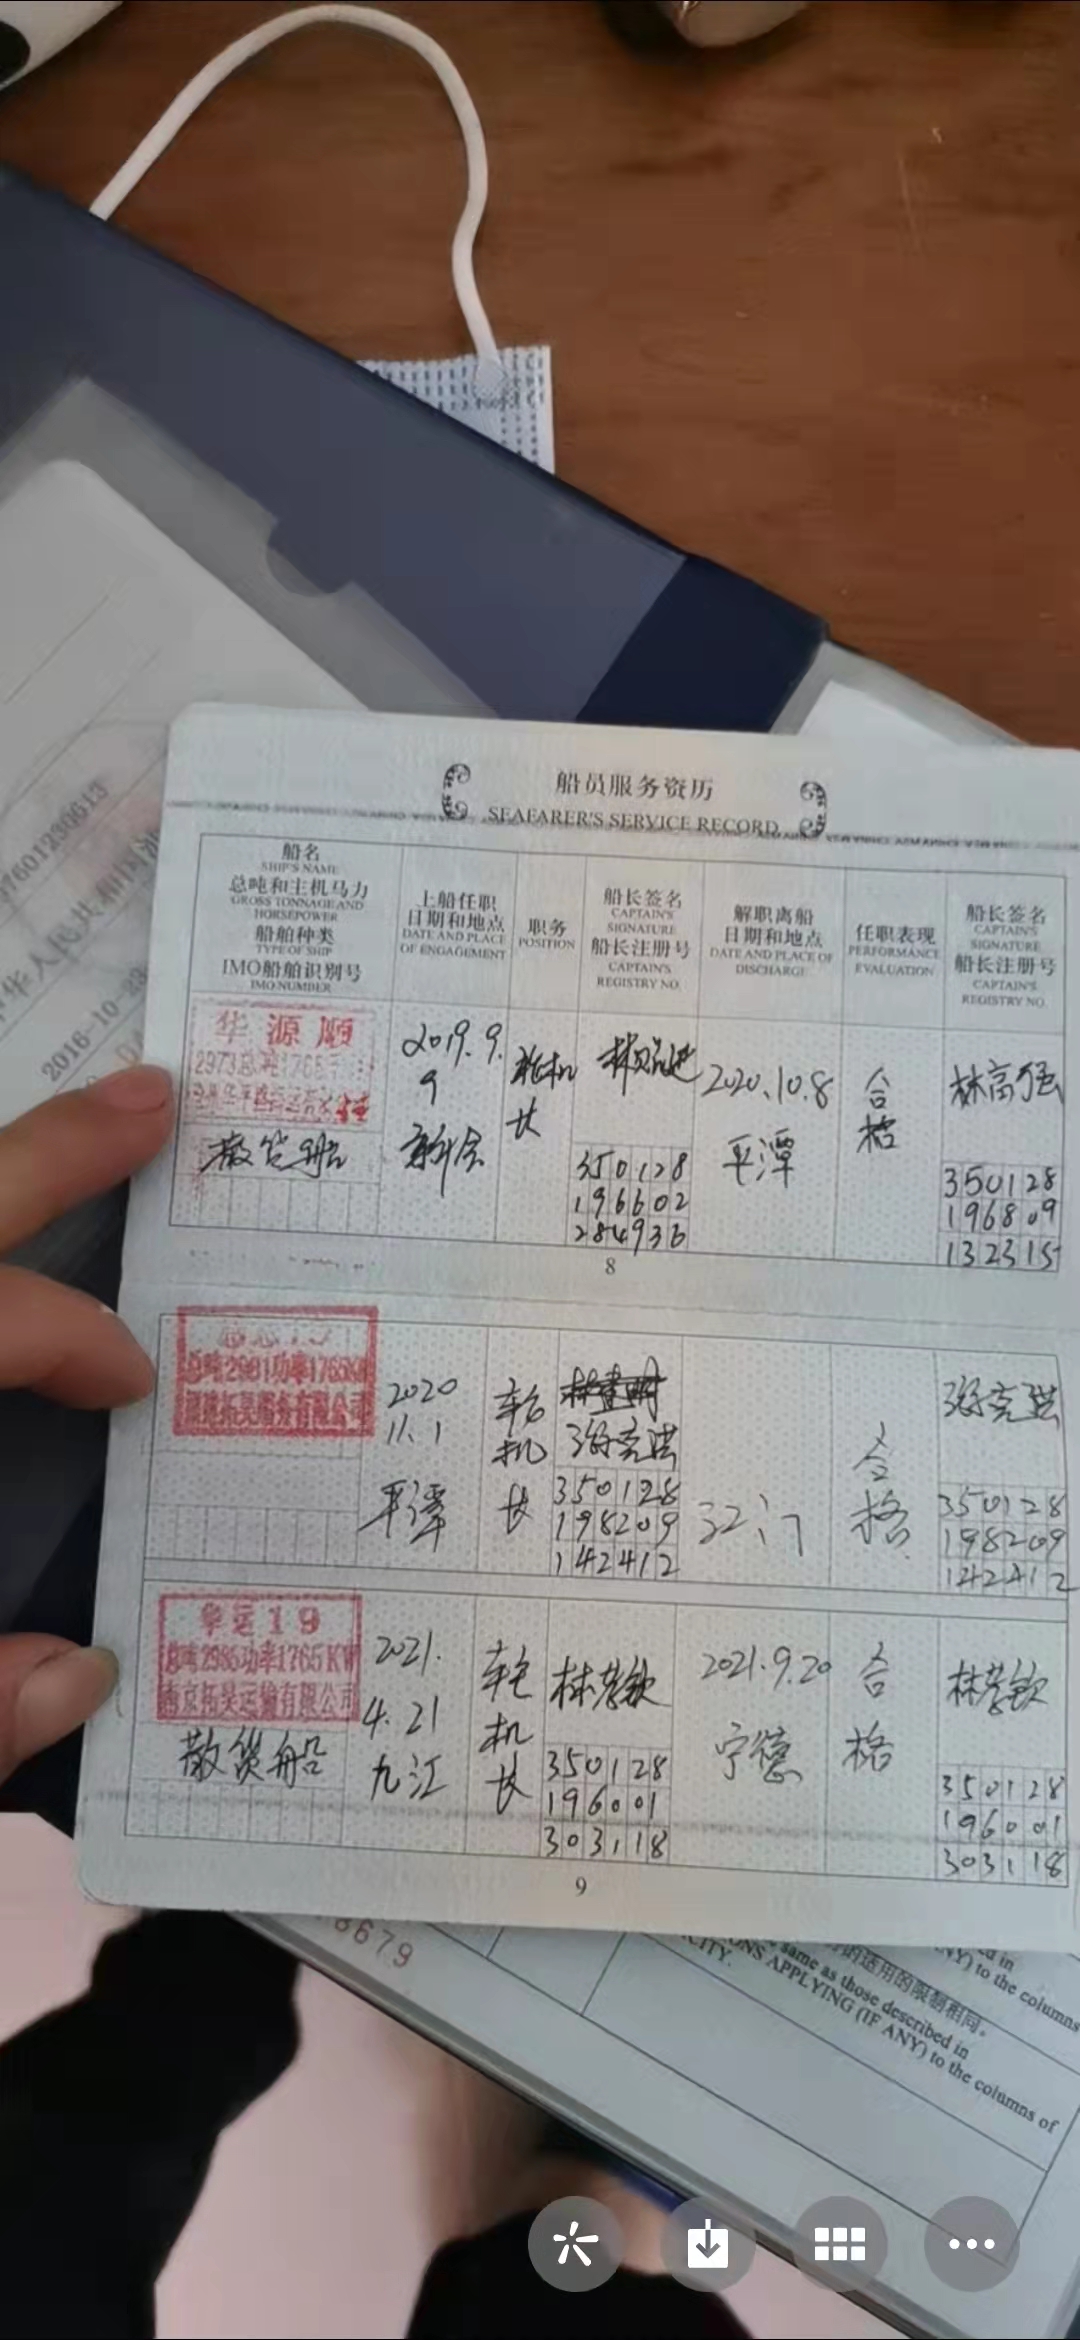 船员服务资历
SEAFARER'S SERVICE RECORD
船名
SHIP'S NAME
总吨和主机马力
GROSS TONNAGE AND
HORSEPOWER
船舶种类
TYPE OF SHIP
IMO船舶识别号
IMO NUMBER
上船任职
日期和地点
DATE AND PLACE
OF ENGAGEMENT
职务
POSITION
船长签名
CAPTAIN'S
SIGNATURE
船长注册号
CAPTAIN'S
REGISTRY NO.
解职离船
日期和地点
DATE AND PLACE OF
DISCHARGE
任职表现
PERFORMANCE
EVALUATION
船长签名
CAPTAIN'S
SIGNATURE
船长注册号
CAPTAIN'S
REGISTRY NO.
华源顺
散货船
2019.9.
9
新会
轮机
长
350128
196602
284936
2020.10.8
平潭
合
格
林高强
350128
196809
132315
8
总吨2981功率1765KW
2020
11.1
平潭
轮
机
长
350128
198209
142412
江门
合
格
350128
198209
142412
华运19
总吨2986功率1765KW
散货船
2021.
4.21
九江
轮
机
长
350128
196001
303118
2021.9.20
宁德
合
格
350128
196001
303118
9
2016-10-23
8679
的适用的限制相同。
same as those described in
ONS APPLYING (IF ANY) to the columns of
CITY.
NY) to the columns